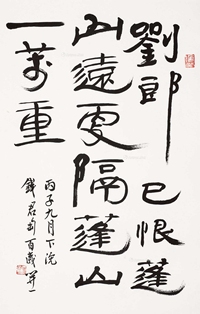 劉郎已恨蓬
山遠更隔蓬山
一萬重
丙子九月下浣
錢君匋百歲一